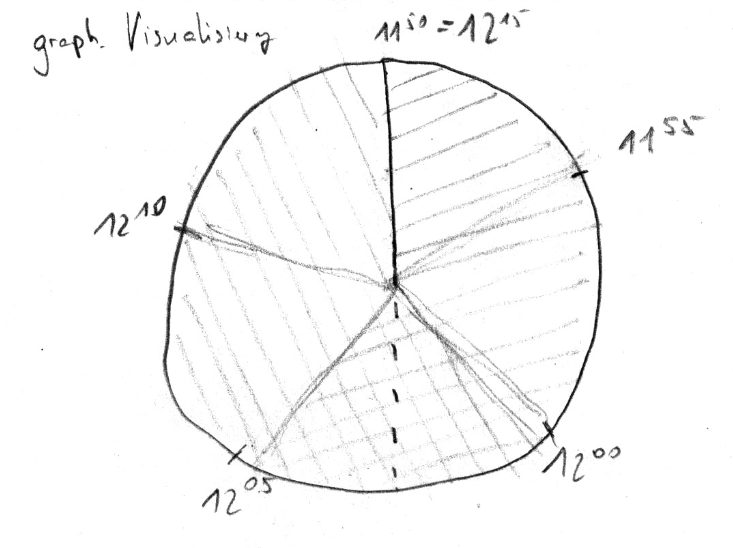 graph. Visualisierg
11⁵⁰ = 12¹⁵
11⁵⁵
12¹⁰
12⁰⁰
12⁰⁵